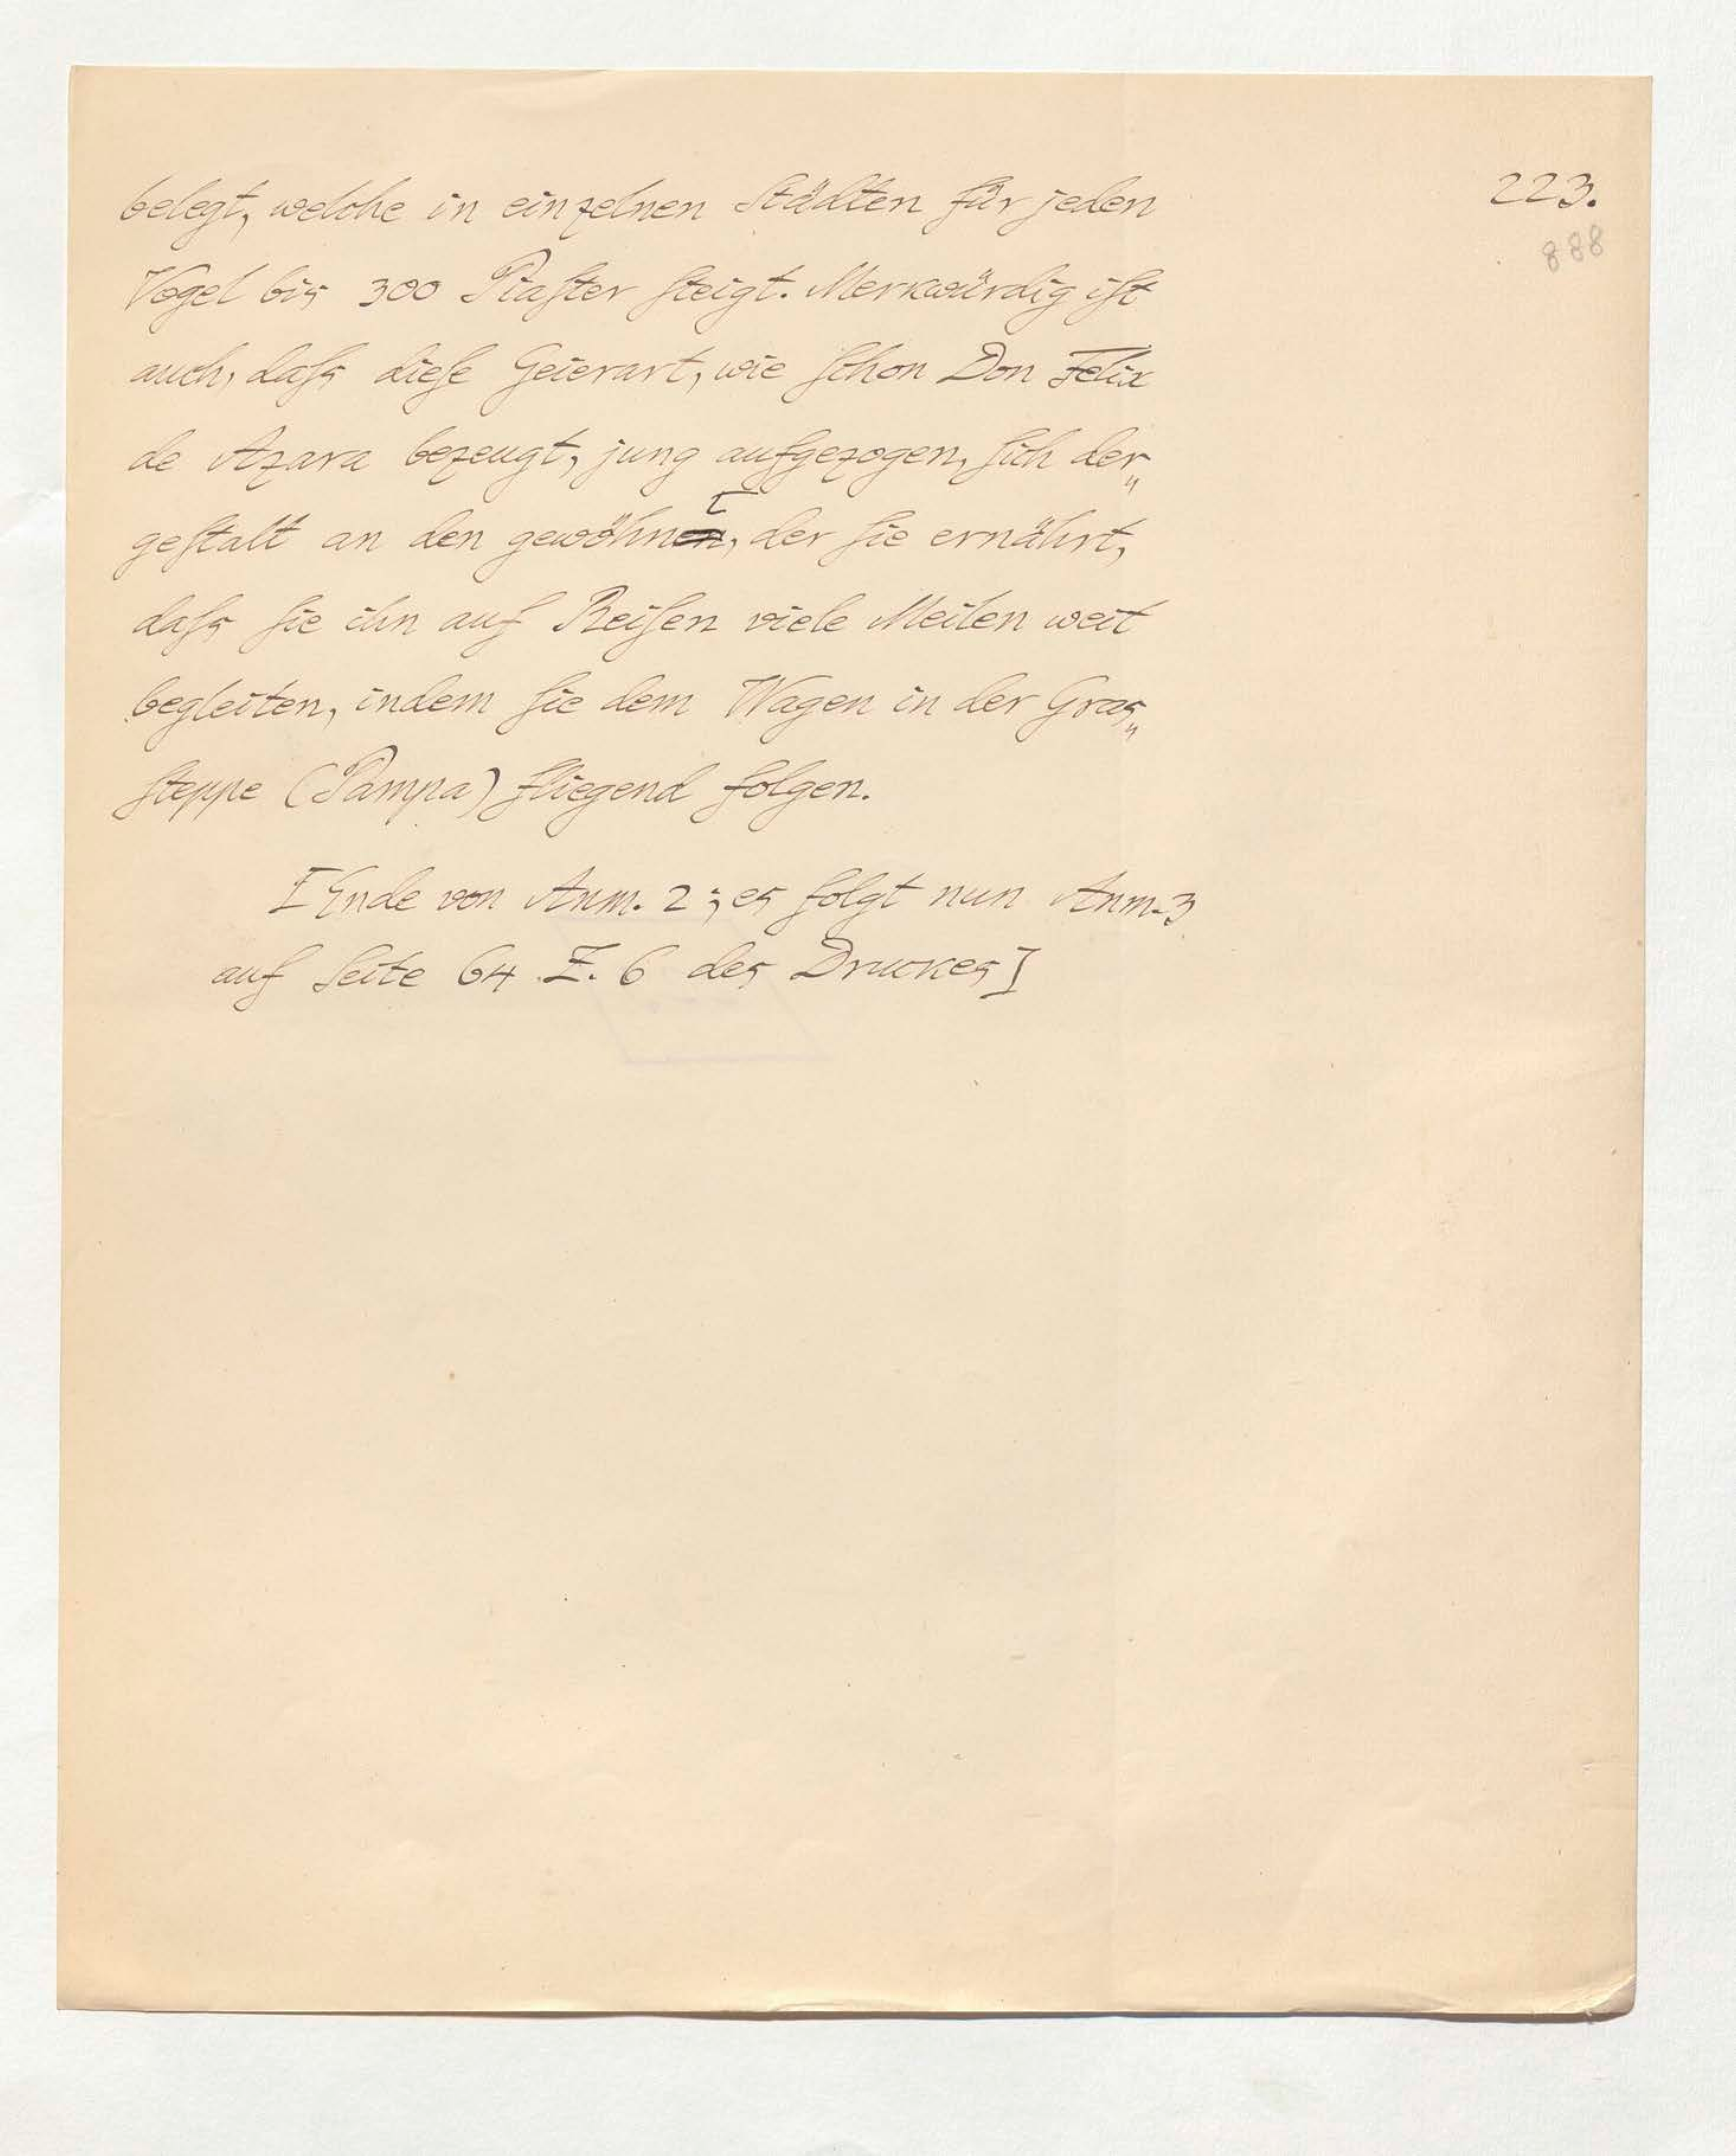 223.
888
belegt, welche in einzelnen Städten für jeden
Vogel bis 300 Piaſter ſteigt. Merkwürdig iſt
auch, daſs dieſe Geierart, wie ſchon Don Felix
de Azara bezeugt, jung aufgezogen, ſich der„
geſtalt an den gewöhnen t, der ſie ernährt,
daſs ſie ihn auf Reiſen viele Meilen weit
begleiten, indem ſie dem Wagen in der Gras„
ſteppe (Pampa) fliegend folgen.
[Ende von Anm. 2; es folgt nun Anm. 3
auf Seite 64 Z. 6 des Druckes]